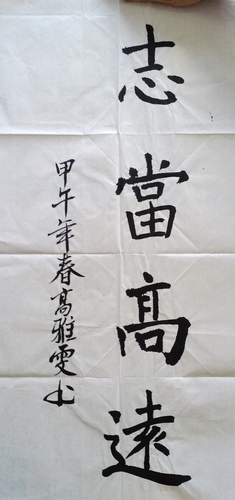 志當高遠
甲午年春高雅雯书